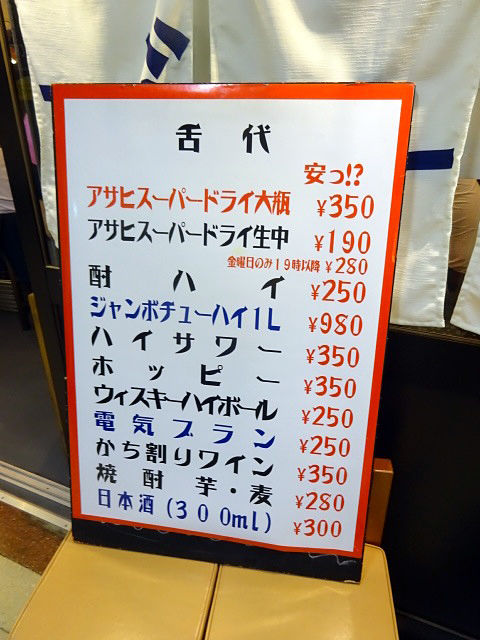 舌代
安っ!?
アサヒスーパードライ大瓶 ¥350
アサヒスーパードライ生中 ¥190
金曜日のみ19時以降 ¥280
酎ハイ ¥250
ジャンボチューハイ1L ¥980
ハイサワー ¥350
ホッピー ¥350
ウィスキーハイボール ¥250
電気ブラン ¥250
かち割りワイン ¥350
焼酎 芋・麦 ¥280
日本酒(300ml) ¥300